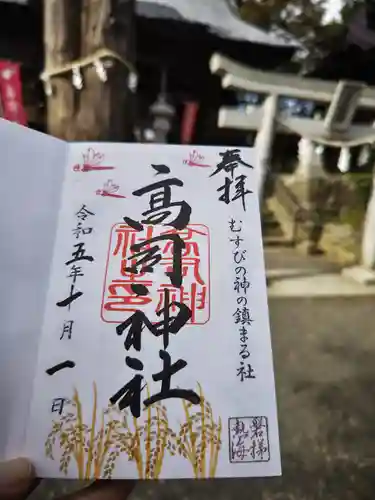 奉拝
むすびの神の鎮まる社
高司神社
高司神社之印
令和五年十月一日